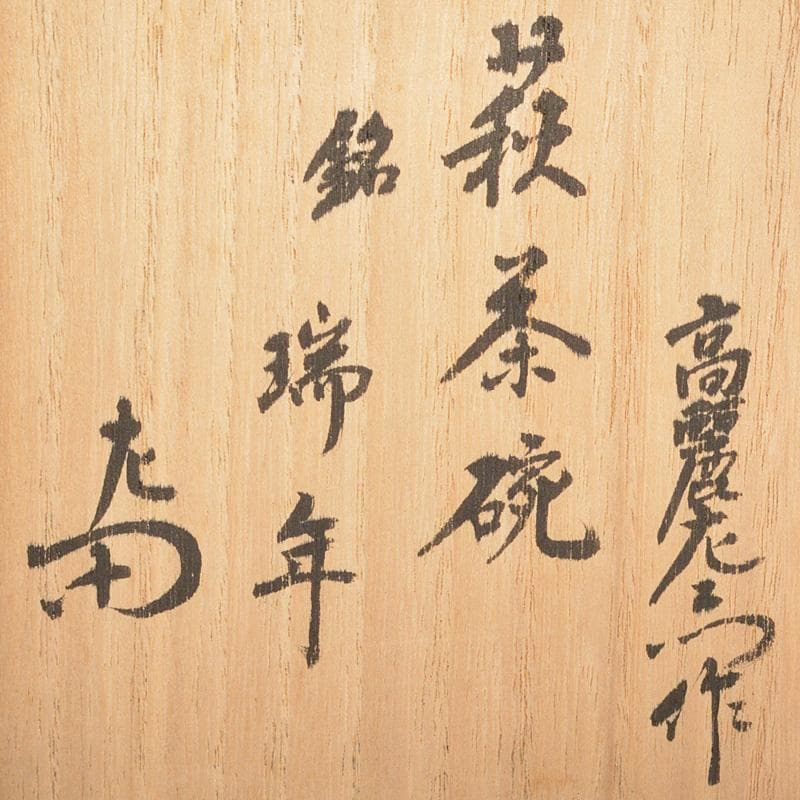 高麗左衛門作
萩茶碗
銘 瑞年
左